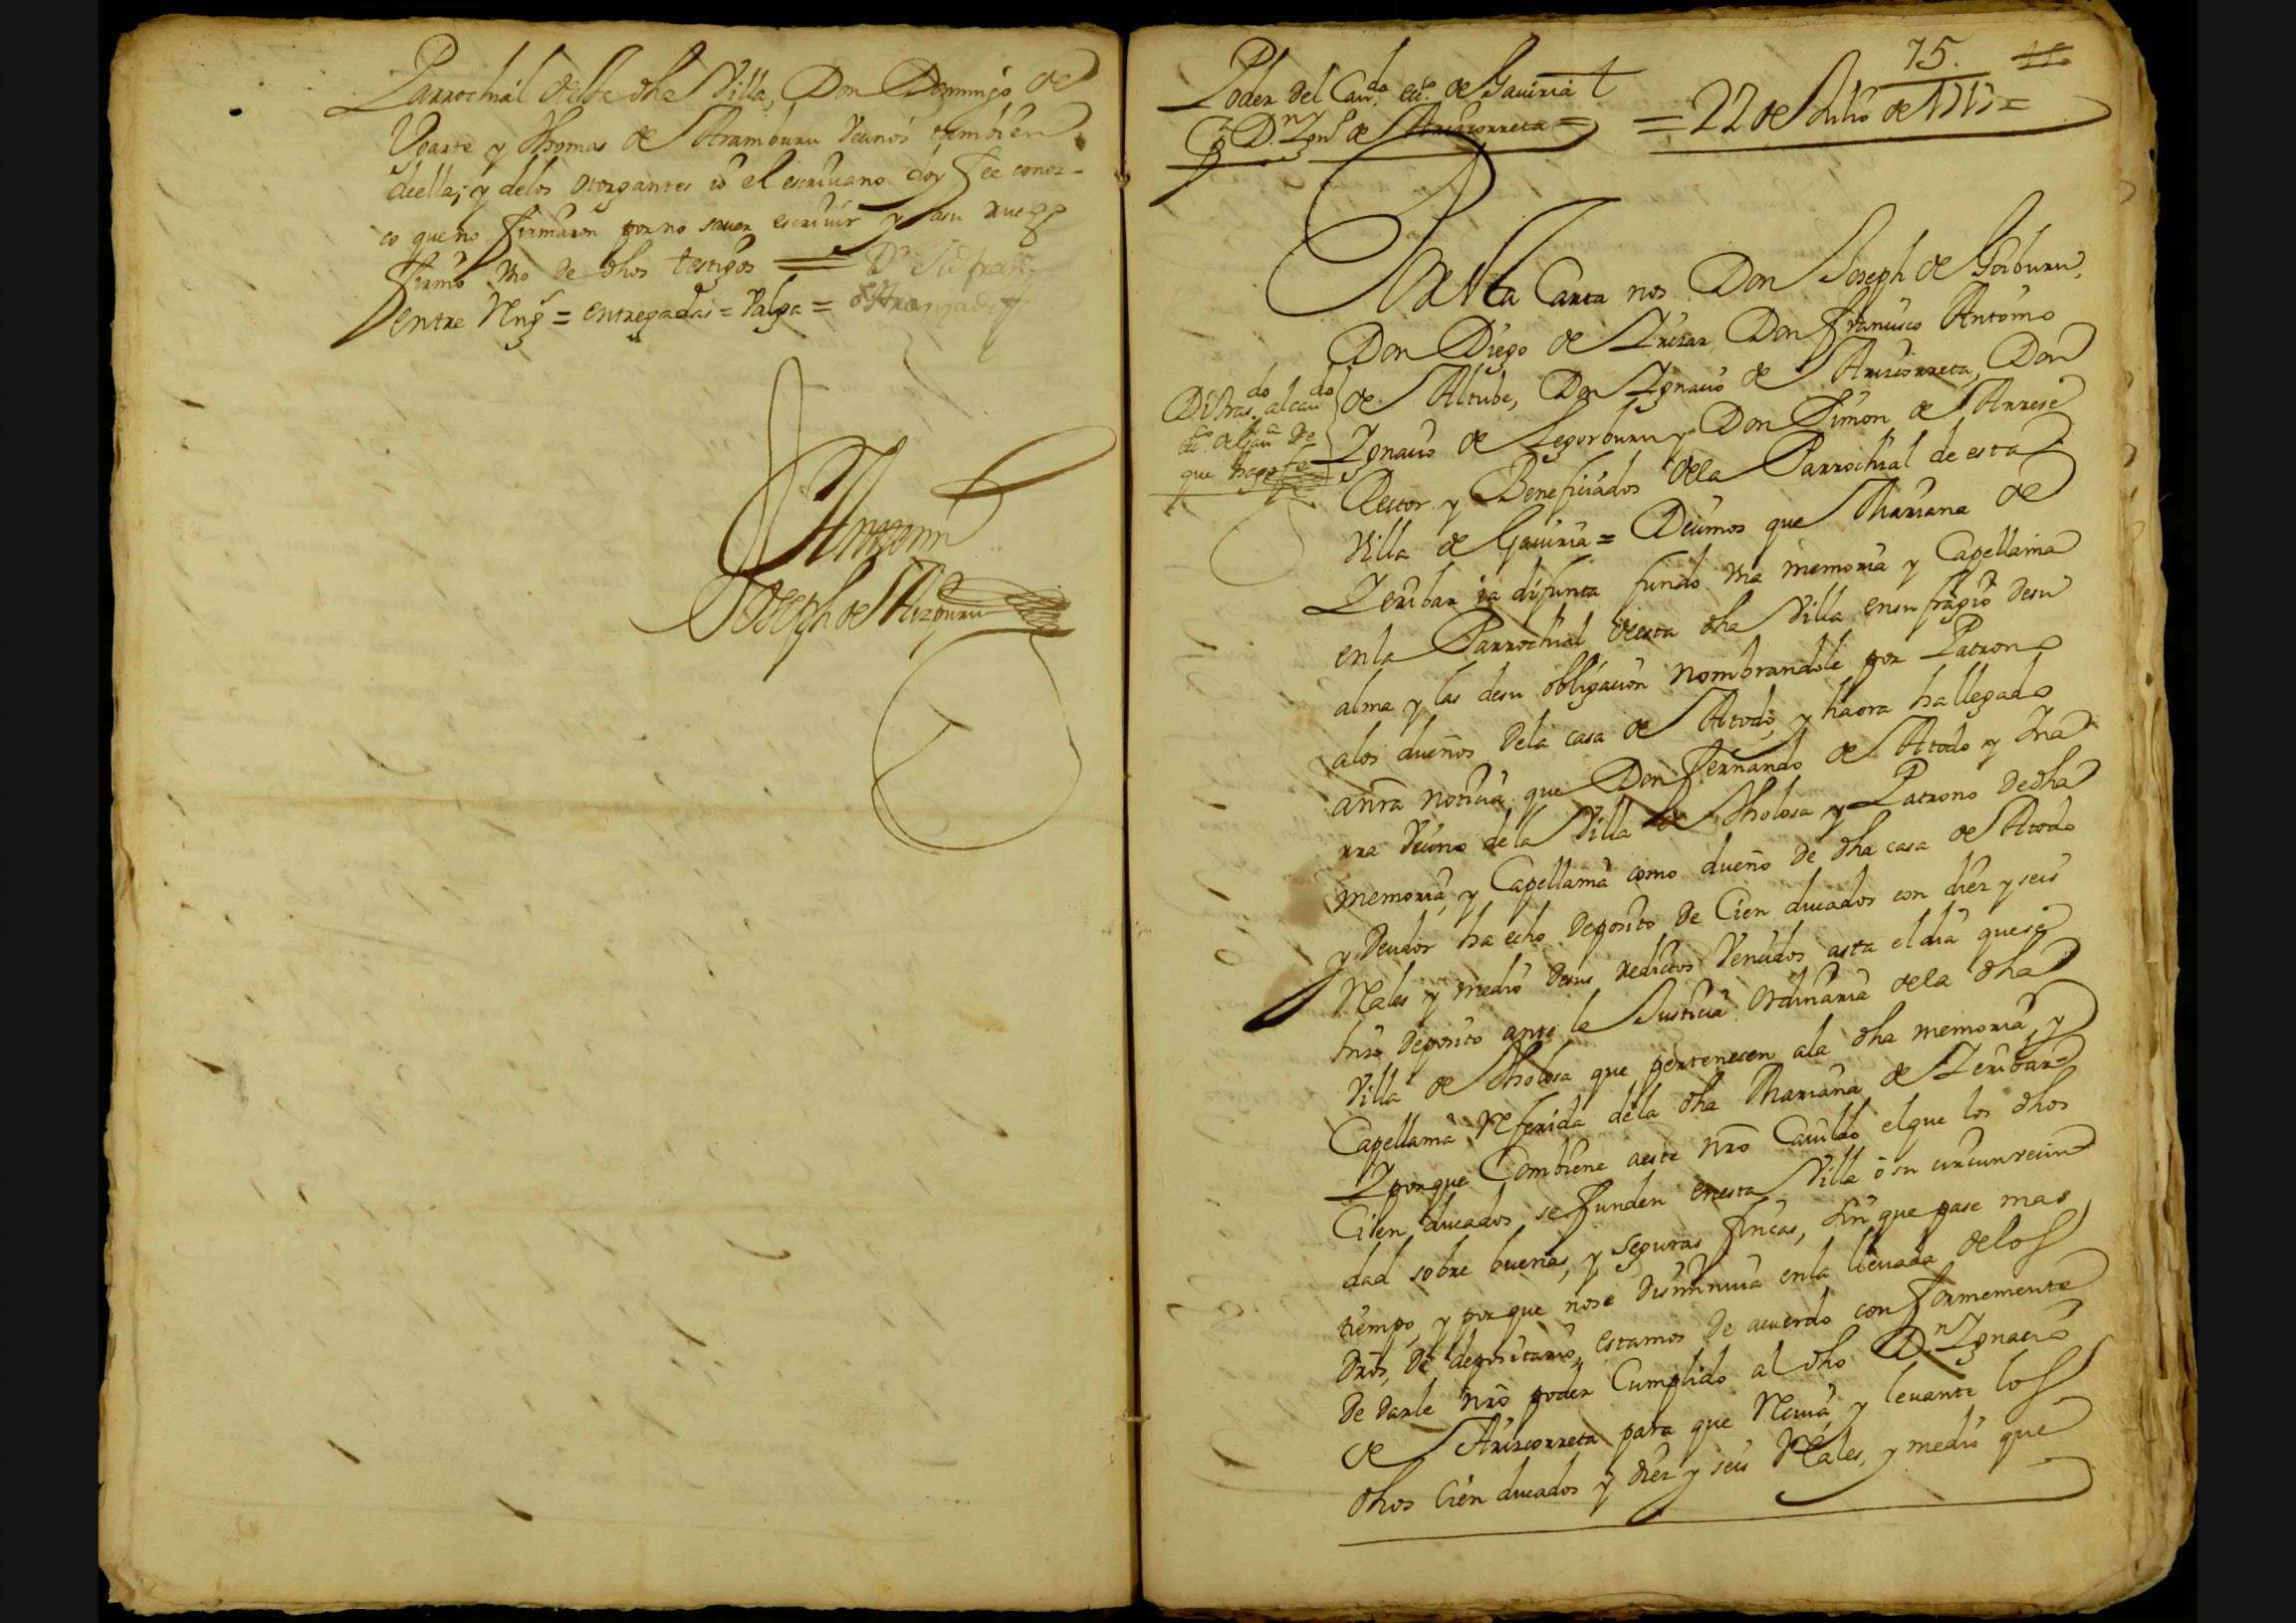 Parrochial desta dha Villa, Don Domingo de
Vgarte y Thomas de Aramburu vecinos tambien
deella; y delos otorgantes io el escriuano doy fee conoz-
co que no firmaron por no sauer escriuir y asu ruego
firmo vno de dhos testigos =
entre Rngs = entregadas = Valga =
Anttemi
Joseph de Aizpuru
75.
Poder del Caudo ecco de Gauiria
Dn Ignº de Arizcorreta =
= 22 de Julio de 1713 =
Sea esta Carta nos Don Joseph de Gorburu,
Don Diego de Irizar, Don Francisco Antonio
de Altube, Don Ignacio de Arizcorreta, Don
Ignacio de Legorburu y Don Simon de Arrese
Rector y Beneficiados dela Parrochial de esta
Villa de Gauiria = Decimos que Mariana de
Zeribar ia difunta fundo vna memoria y Capellania
enla Parrochial deesta dha Villa ensufragio desu
alma y las desu obligacion nombrandole por Patrono
alos dueños dela casa de Atodo, y haora hallegado
anra noticia que Don Fernando de Atodo y Ina
rra Vecino dela Villa de Tholosa y Patrono dedha
memoria, y Capellania como dueño de dha casa de Atodo
y Deudor ha echo deposito de Cien ducados con diez y seis
Rales y medio desus reditos Vencidos asta el dia quese
hizo deposito ante la Justicia Ordinaria dela dha
Villa de Tholosa que pertenecen ala dha memoria, y
Capellania Referida dela dha Mariana de Zeribar =
Y porque Combiene aeste nro Cauildo elque los dhos
Cien ducados se funden enesta Villa ó su circunvecin
dad sobre buenas, y seguras fincas, sin que pase mas
tiempo, y porque nose disminuia enla lleuada delos
dros, de depositario, estamos de acuerdo conformemente
de darle nro poder Cumplido al dho Dn Ignacio
de Arizcorreta para que Reciua, y leuante los
dhos Cien ducados y diez y seis Rales, y medio que
Di tras.do al cau.do
ecº de Gauª de
que hago fe